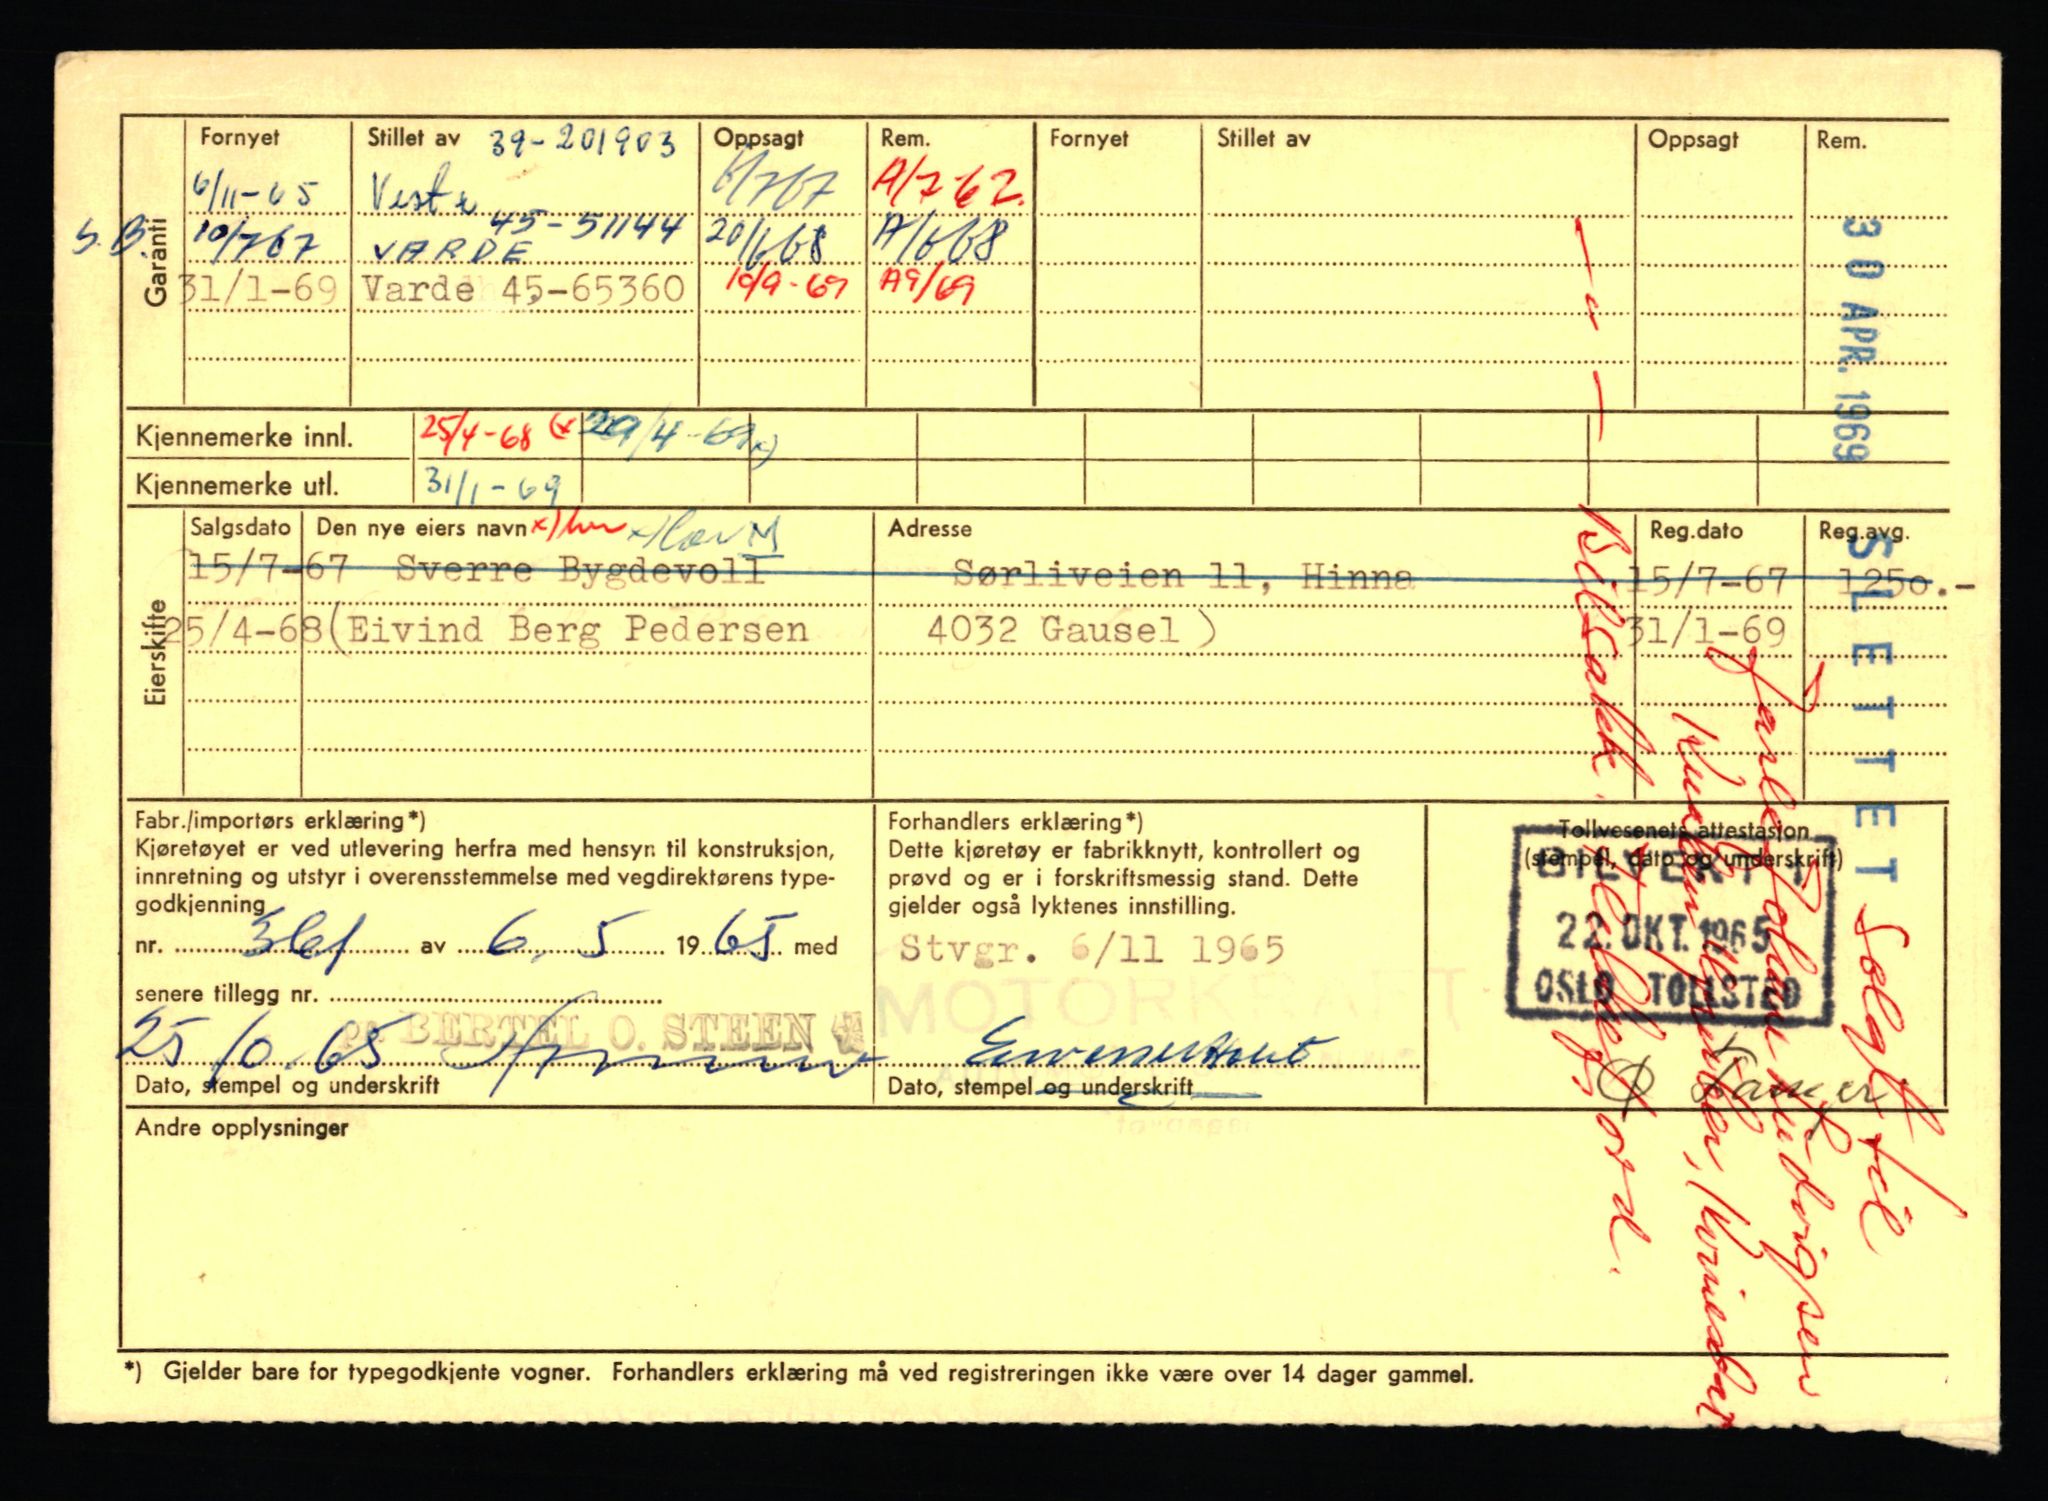 Fornyet Stillet av 39-201903 Oppsagt Rem. Fornyet Stillet av Oppsagt Rem.
6/11-65 Vesta 6/7 67 A/7-67.
S.B. 10/7 67 VARDE 45-51144 20/6 68 A/6 68
31/1-69 Varde 45-65360 10/9-69 A9/69
Garanti
Kjennemerke innl. 25/4-68 (x 29/4-69 x)
Kjennemerke utl. 31/1-69
Eierskifte
Salgsdato Den nye eiers navn Adresse Reg.dato Reg.avg.
15/7-67 Sverre Bygdevoll Sørliveien 11, Hinna 15/7-67 1250.-
25/4-68 (Eivind Berg Pedersen 4032 Gausel) 31/1-69
30 APR. 1969
SLETTET
Solgt til
Jarle Johan Ludvigsen
Bilsakk.
Fabr./importørs erklæring*)
Kjøretøyet er ved utlevering herfra med hensyn til konstruksjon,
innretning og utstyr i overensstemmelse med vegdirektørens type-
godkjenning
nr. 361 av 6. 5 1965 med
senere tillegg nr.
25/10.65 pr. BERTEL O. STEEN A/S
Dato, stempel og underskrift
Forhandlers erklæring*)
Dette kjøretøy er fabrikknytt, kontrollert og
prøvd og er i forskriftsmessig stand. Dette
gjelder også lyktenes innstilling.
Stvgr. 6/11 1965
MOTORKRAFT
Dato, stempel og underskrift
Tollvesenets attestasjon
(stempel, dato og underskrift)
22. OKT. 1965
OSLO TOLLSTED
Andre opplysninger
*) Gjelder bare for typegodkjente vogner. Forhandlers erklæring må ved registreringen ikke være over 14 dager gammel.